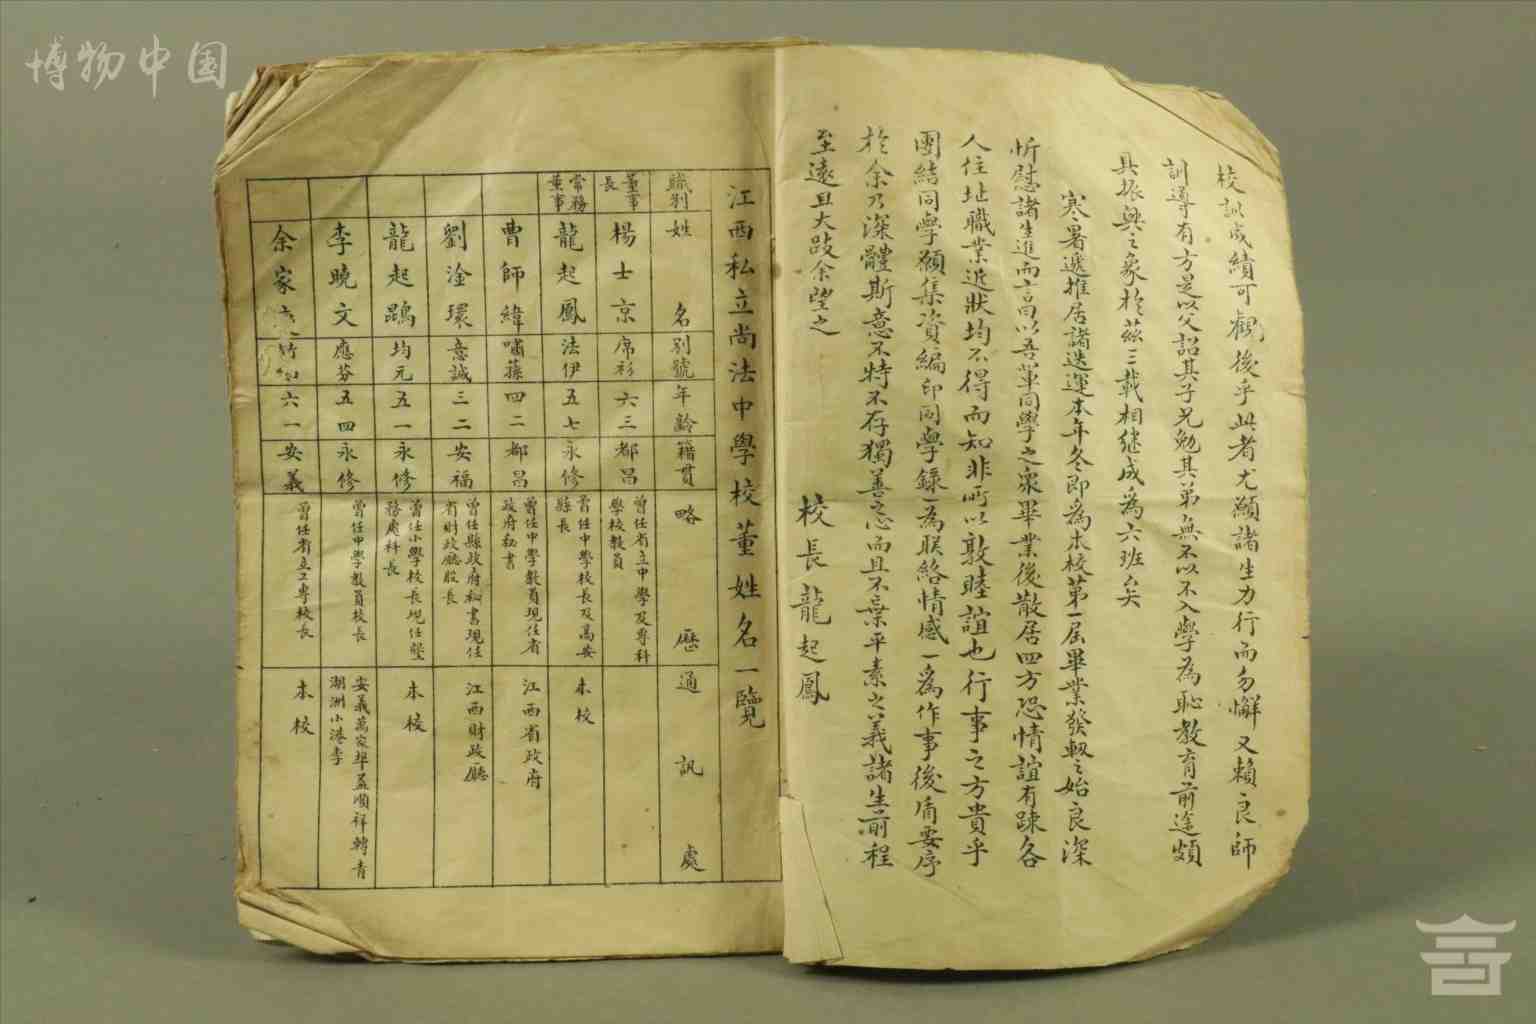 博物中国
校訓成績可觀後乎此者尤願諸生力行而勿懈又賴良師
訓導有方是以父詔其子兄勉其弟無不以不入學為恥教育前途頗
具振興之象於茲三載相繼成為六班矣
寒暑遞推居諸迭運本年冬即為本校第一屆畢業發軔之始良深
忻慰諸生進而言曰以吾輩同學之衆畢業後散居四方恐情誼有疎各
人住址職業近狀均不得而知非所以敦睦誼也行事之方貴乎
團結同學願集資編印同學錄一為联絡情感一為作事後盾要序
於余乃深體斯意不特不存獨善之心而且不棄平素之義諸生前程
至遠且大跂余望之
校長龍起鳳
江西私立尚法中學校董姓名一覽
職別 姓名 別號 年齡 籍貫 略歷 通訊處
董事長 楊士京 席衫 六三 都昌 曾任省立中學及專科學校教員
常務董事 龍起鳳 法伊 五七 永修 曾任中學校長及萬安縣長 本校
曹師緯 嘯蓀 四二 都昌 曾任中學教員現任省政府秘書 江西省政府
劉淦環 意誠 三二 安福 曾任縣政府秘書現任省財政廳股長 江西財政廳
龍起鵾 均元 五一 永修 曾任小學校長現任墾務處科長 本校
李曉文 應芬 五四 永修 曾任中學教員校長 安義萬家埠益順祥轉青湖洲小港李
余家 竹 六一 安義 曾任省立工專校長 本校